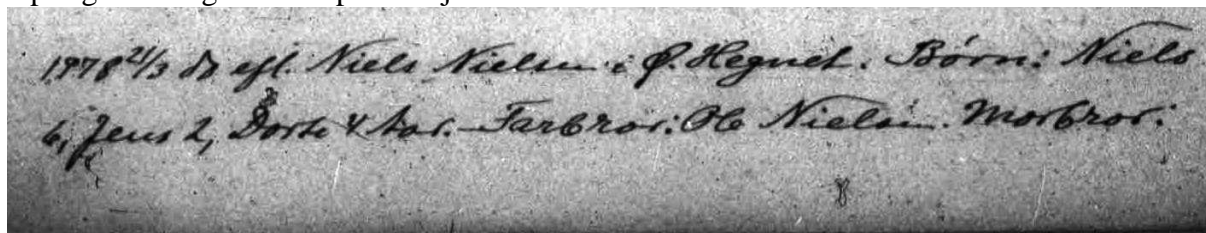 1778 21/3 do efl. Niels Nielsen i Ø. Hegnet. Børn: Niels
6, Jens 2, Dorte 4 Aar. Farbror: Ole Nielsen. Morbror: